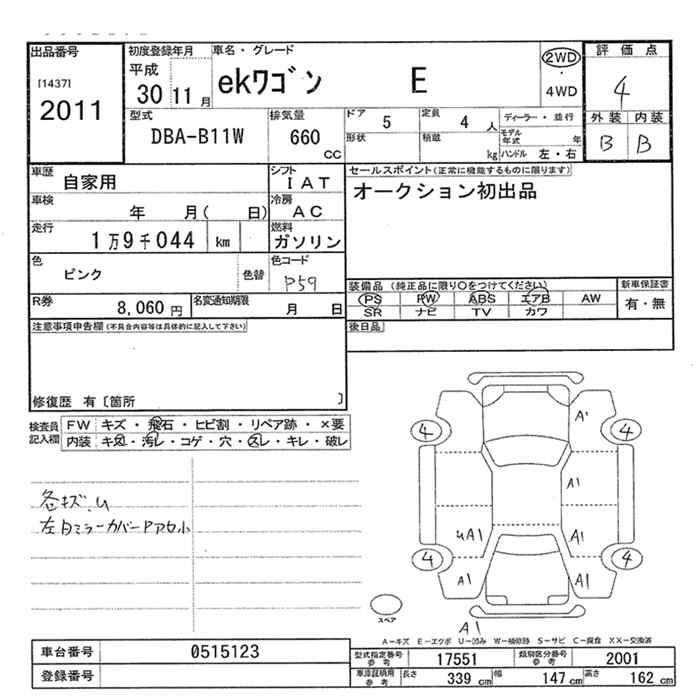 出品番号 初度登録年月 車名・グレード 評価点
[1437] 平成 2WD
2011 30 11月 ekワゴン E ・ 4
4WD
型式 排気量 ドア 5 定員 4 人 ディーラー・並行 外装 内装
DBA-B11W 660 cc 形状 積載 kg モデル年式 年 B B
ハンドル 左・右
車歴 自家用 シフト IAT セールスポイント(正常に機能するものに限ります)
車検 年 月( 日) 冷房 AC オークション初出品
走行 1万9千044 km 燃料 ガソリン
色 ピンク 色替 色コード P59
装備品(純正品に限り〇をつけてください) 新車保証書
R券 8,060円 名変通知期限 月 日 PS PW ABS エアB AW 有・無
SR ナビ TV カワ
注意事項申告欄(不具合内容等は具体的に記入して下さい) 後日品
修復歴 有〔箇所 〕
検査員 FW キズ・飛石・ヒビ割・リペア跡・×要
記入欄 内装 キズ・汚レ・コゲ・穴・スレ・キレ・破レ
A'
4 4
A1
各キズ.U
左ドミラーカバーPアセ小
4A1 A1
4 4
A1 A1
スペア
A1
A-キズ E-エクボ U-凹み W-補修跡 S-サビ C-腐食 XX-交換済
車台番号 0515123 型式指定番号 参考 17551 類別区分番号 参考 2001
登録番号 車庫証明用 参考 長さ 339 cm 幅 147 cm 高さ 162 cm